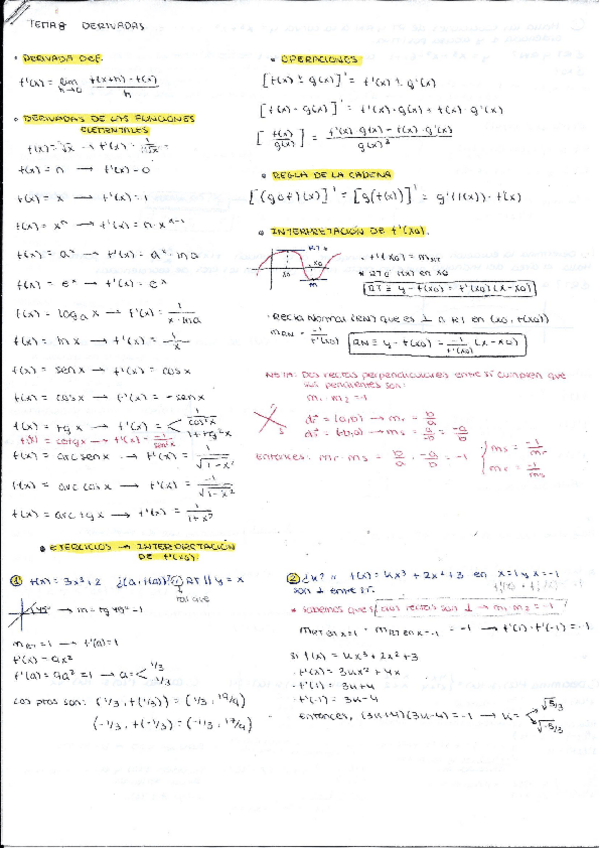 TEMA 8 DERIVADAS
• DERIVADA DEF.
f'(x) = lim h→0 f(x+h) - f(x) / h
• DERIVADAS DE LAS FUNCIONES
ELEMENTALES
f(x) = n → f'(x) = 0
f(x) = x → f'(x) = 1
f(x) = xⁿ → f'(x) = n·xⁿ⁻¹
f(x) = aˣ → f'(x) = aˣ · ln a
f(x) = eˣ → f'(x) = eˣ
f(x) = logₐ x → f'(x) = 1/(x·ln a)
f(x) = ln x → f'(x) = 1/x
f(x) = sen x → f'(x) = cos x
f(x) = cos x → f'(x) = -sen x
f(x) = tg x → f'(x) = < 1/cos²x
1+tg²x
f(x) = cotg x → f'(x) = -1/sen²x
f(x) = arc sen x → f'(x) = 1/√(1-x²)
f(x) = arc cos x → f'(x) = -1/√(1-x²)
f(x) = arc tg x → f'(x) = 1/(1+x²)
• OPERACIONES
[f(x) ± g(x)]' = f'(x) ± g'(x)
[f(x) · g(x)]' = f'(x) · g(x) + f(x) · g'(x)
[f(x)/g(x)]' = f'(x)·g(x) - f(x)·g'(x) / g(x)²
• REGLA DE LA CADENA
[(g o f)(x)]' = [g(f(x))]' = g'(f(x)) · f'(x)
• INTERPRETACIÓN DE f'(x0).
RT
x0 x0
• f'(x0) = mRT
• RT a f(x) en x0
RT ≡ y - f(x0) = f'(x0)(x-x0)
• Recta Normal (RN) que es ⊥ a RT en (x0, f(x0))
mRN = -1/f'(x0)
RN ≡ y - f(x0) = -1/f'(x0) (x-x0)
NOTA: Dos rectas perpendiculares entre sí cumplen que
sus pendientes son:
m₁ · m₂ = -1
r s
dr = (a,b) → mr = b/a
ds = (-b,a) → ms = a/-b = -a/b
Entonces: mr · ms = b/a · -a/b = -1
ms = -1/mr
mr = -1/ms
• EJERCICIOS → INTERPRETACIÓN
DE f'(x0).
① f(x) = 3x³+2 ¿(a, f(a))? RT || y = x
tal que
45° → m = tg 45° = 1
mRT = 1 → f'(a) = 1
f'(x) = 9x²
f'(a) = 9a² = 1 → a = < 1/3
-1/3
Los ptos son: (1/3, f(1/3)) = (1/3, 19/9)
(-1/3, f(-1/3)) = (-1/3, 17/9)
② ¿k? f(x) = kx³ + 2x² + 3 en x = 1 y x = -1
son ⊥ entre sí.
* Sabemos que si dos rectas son ⊥ → m₁ m₂ = -1
mRT en x=1 · mRT en x=-1 = -1 → f'(1) · f'(-1) = -1
si f(x) = kx³ + 2x² + 3
• f'(x) = 3kx² + 4x
• f'(1) = 3k+4
• f'(-1) = 3k-4
entonces, (3k+4)(3k-4) = -1 → k = √5/3
√-5/3